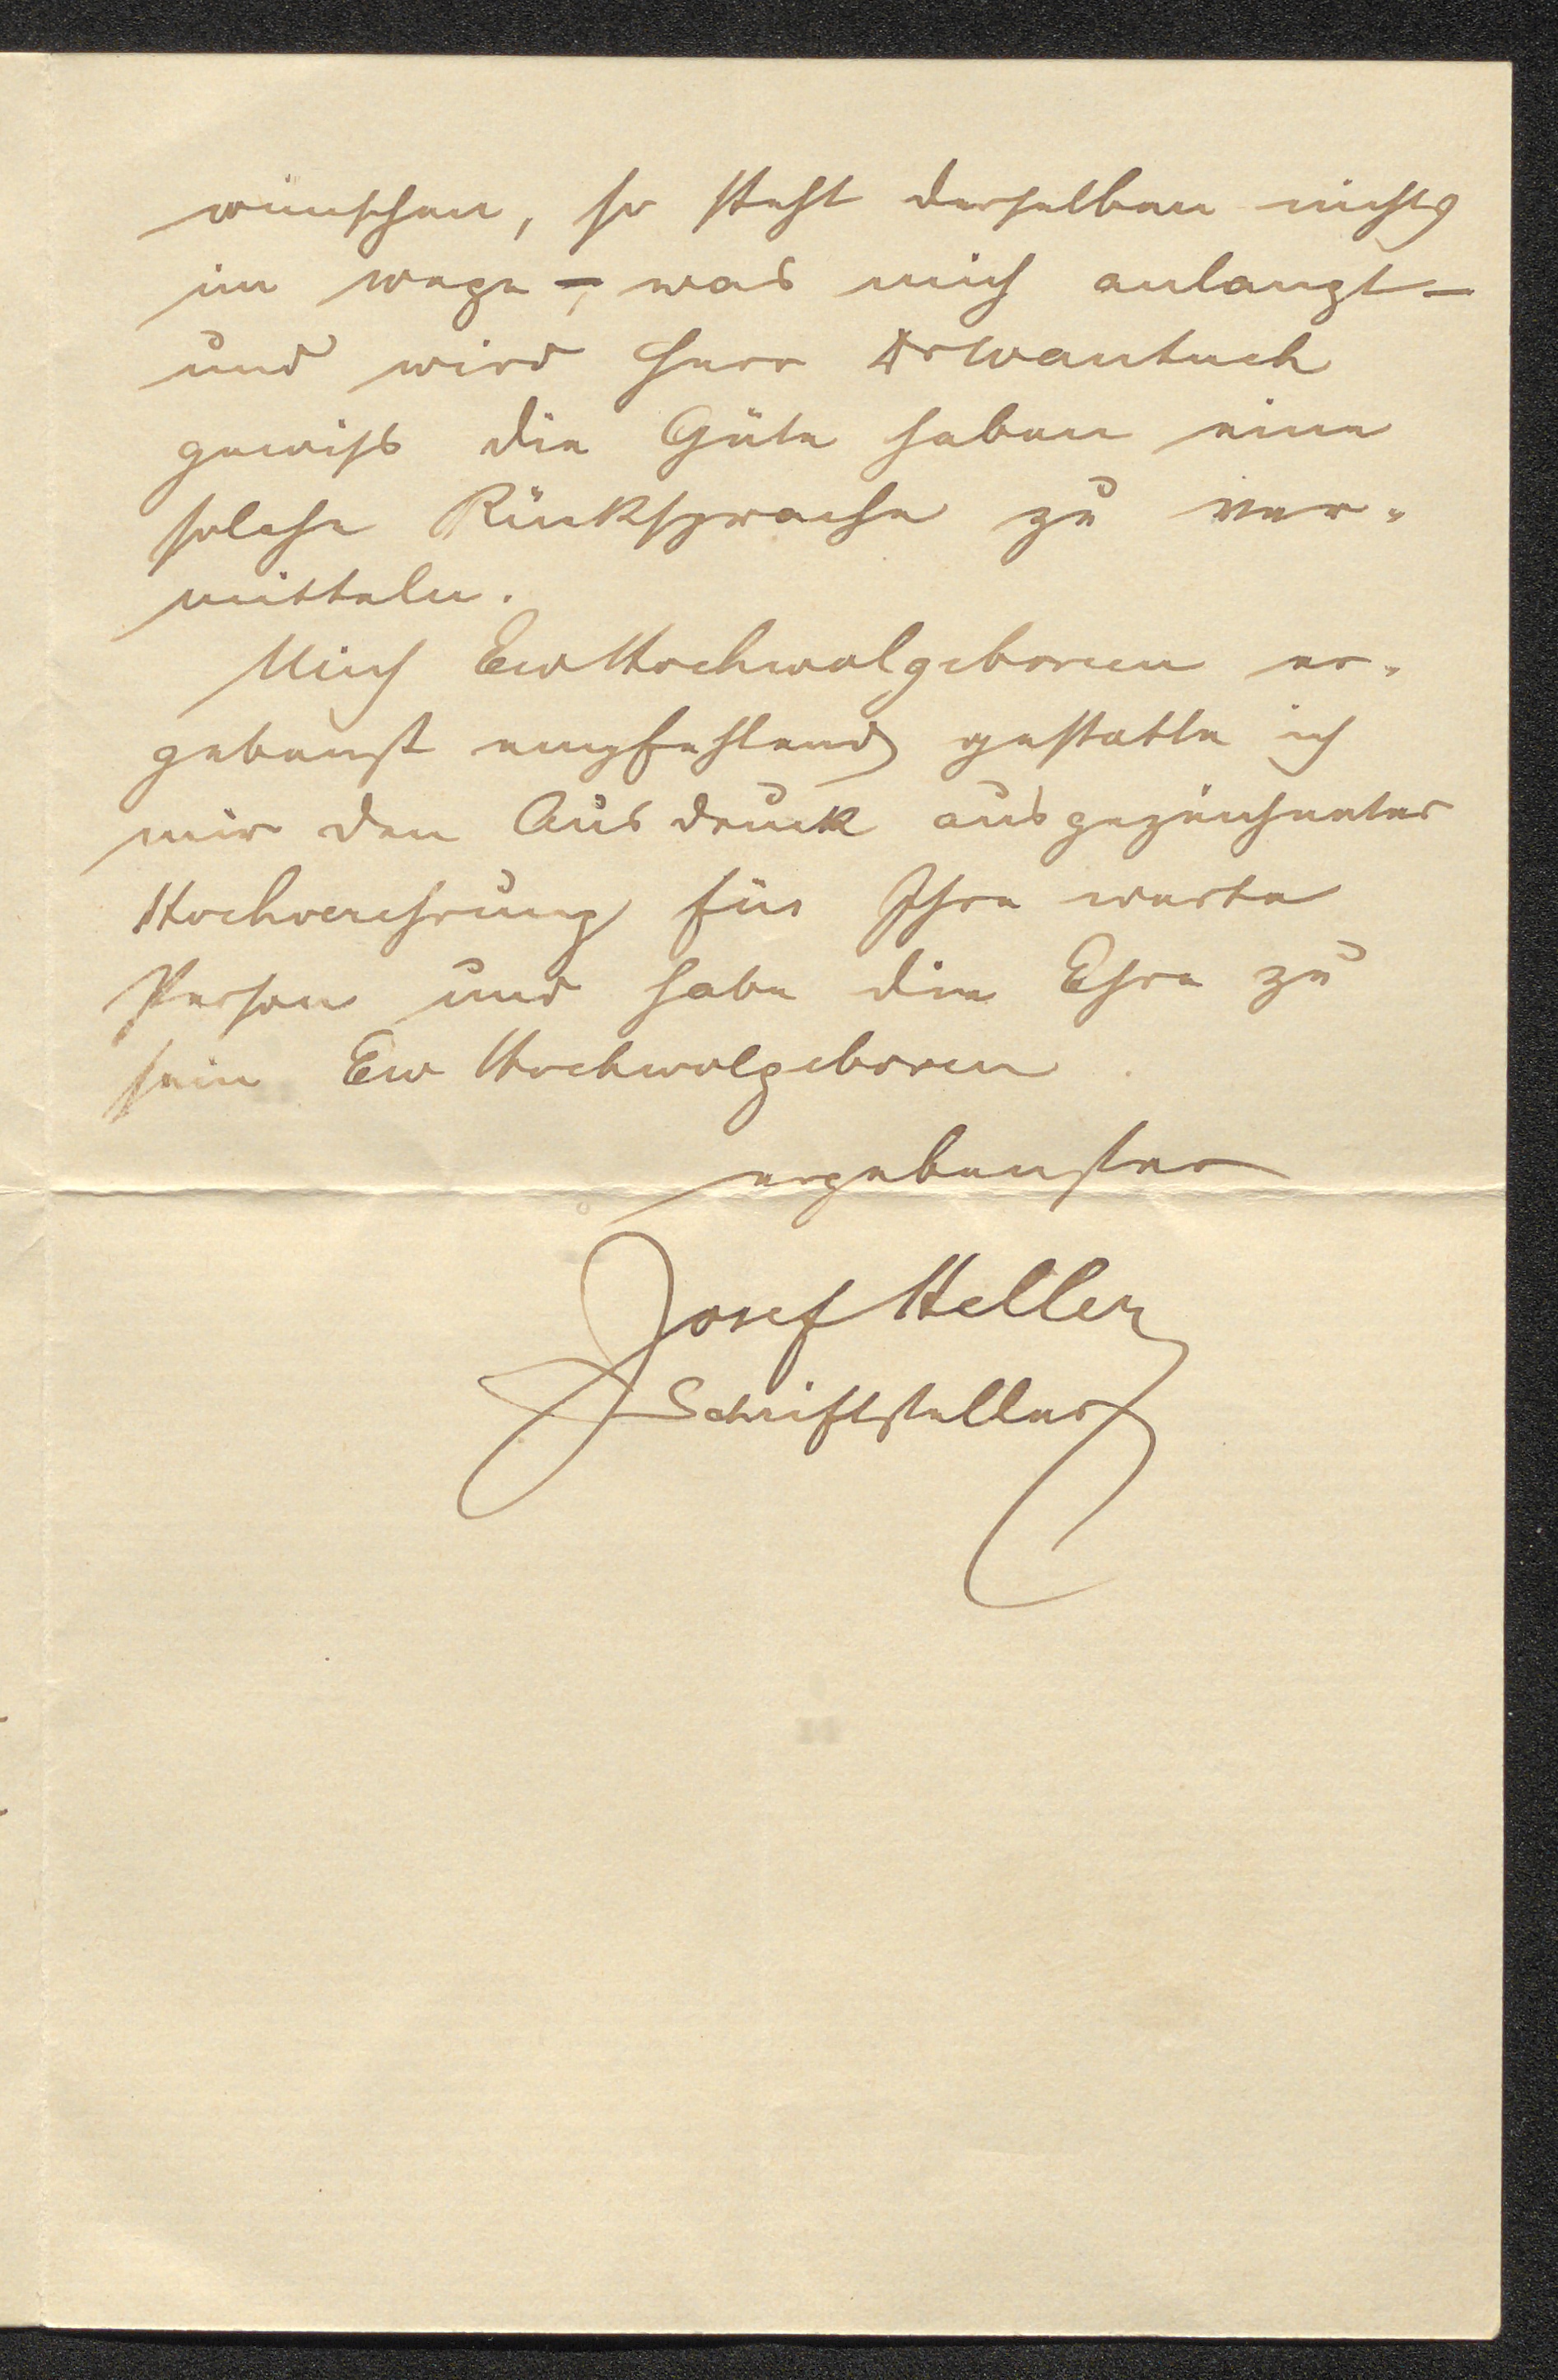 wünschen, so steht derselben nichts
im wege – was mich anlangt –
und wird Herr Dr Wantuch
gewiss die Güte haben eine
solche Rücksprache zu ver-
mitteln.
Mich Ew Hochwolgeboren er-
gebenst empfehlend gestatte ich
mir den Ausdruck ausgezeichneter
Hochverehrung für Ihre werte
Person und habe die Ehre zu
sein Ew Hochwolgeboren
ergebenster
Josef Heller
Schriftsteller